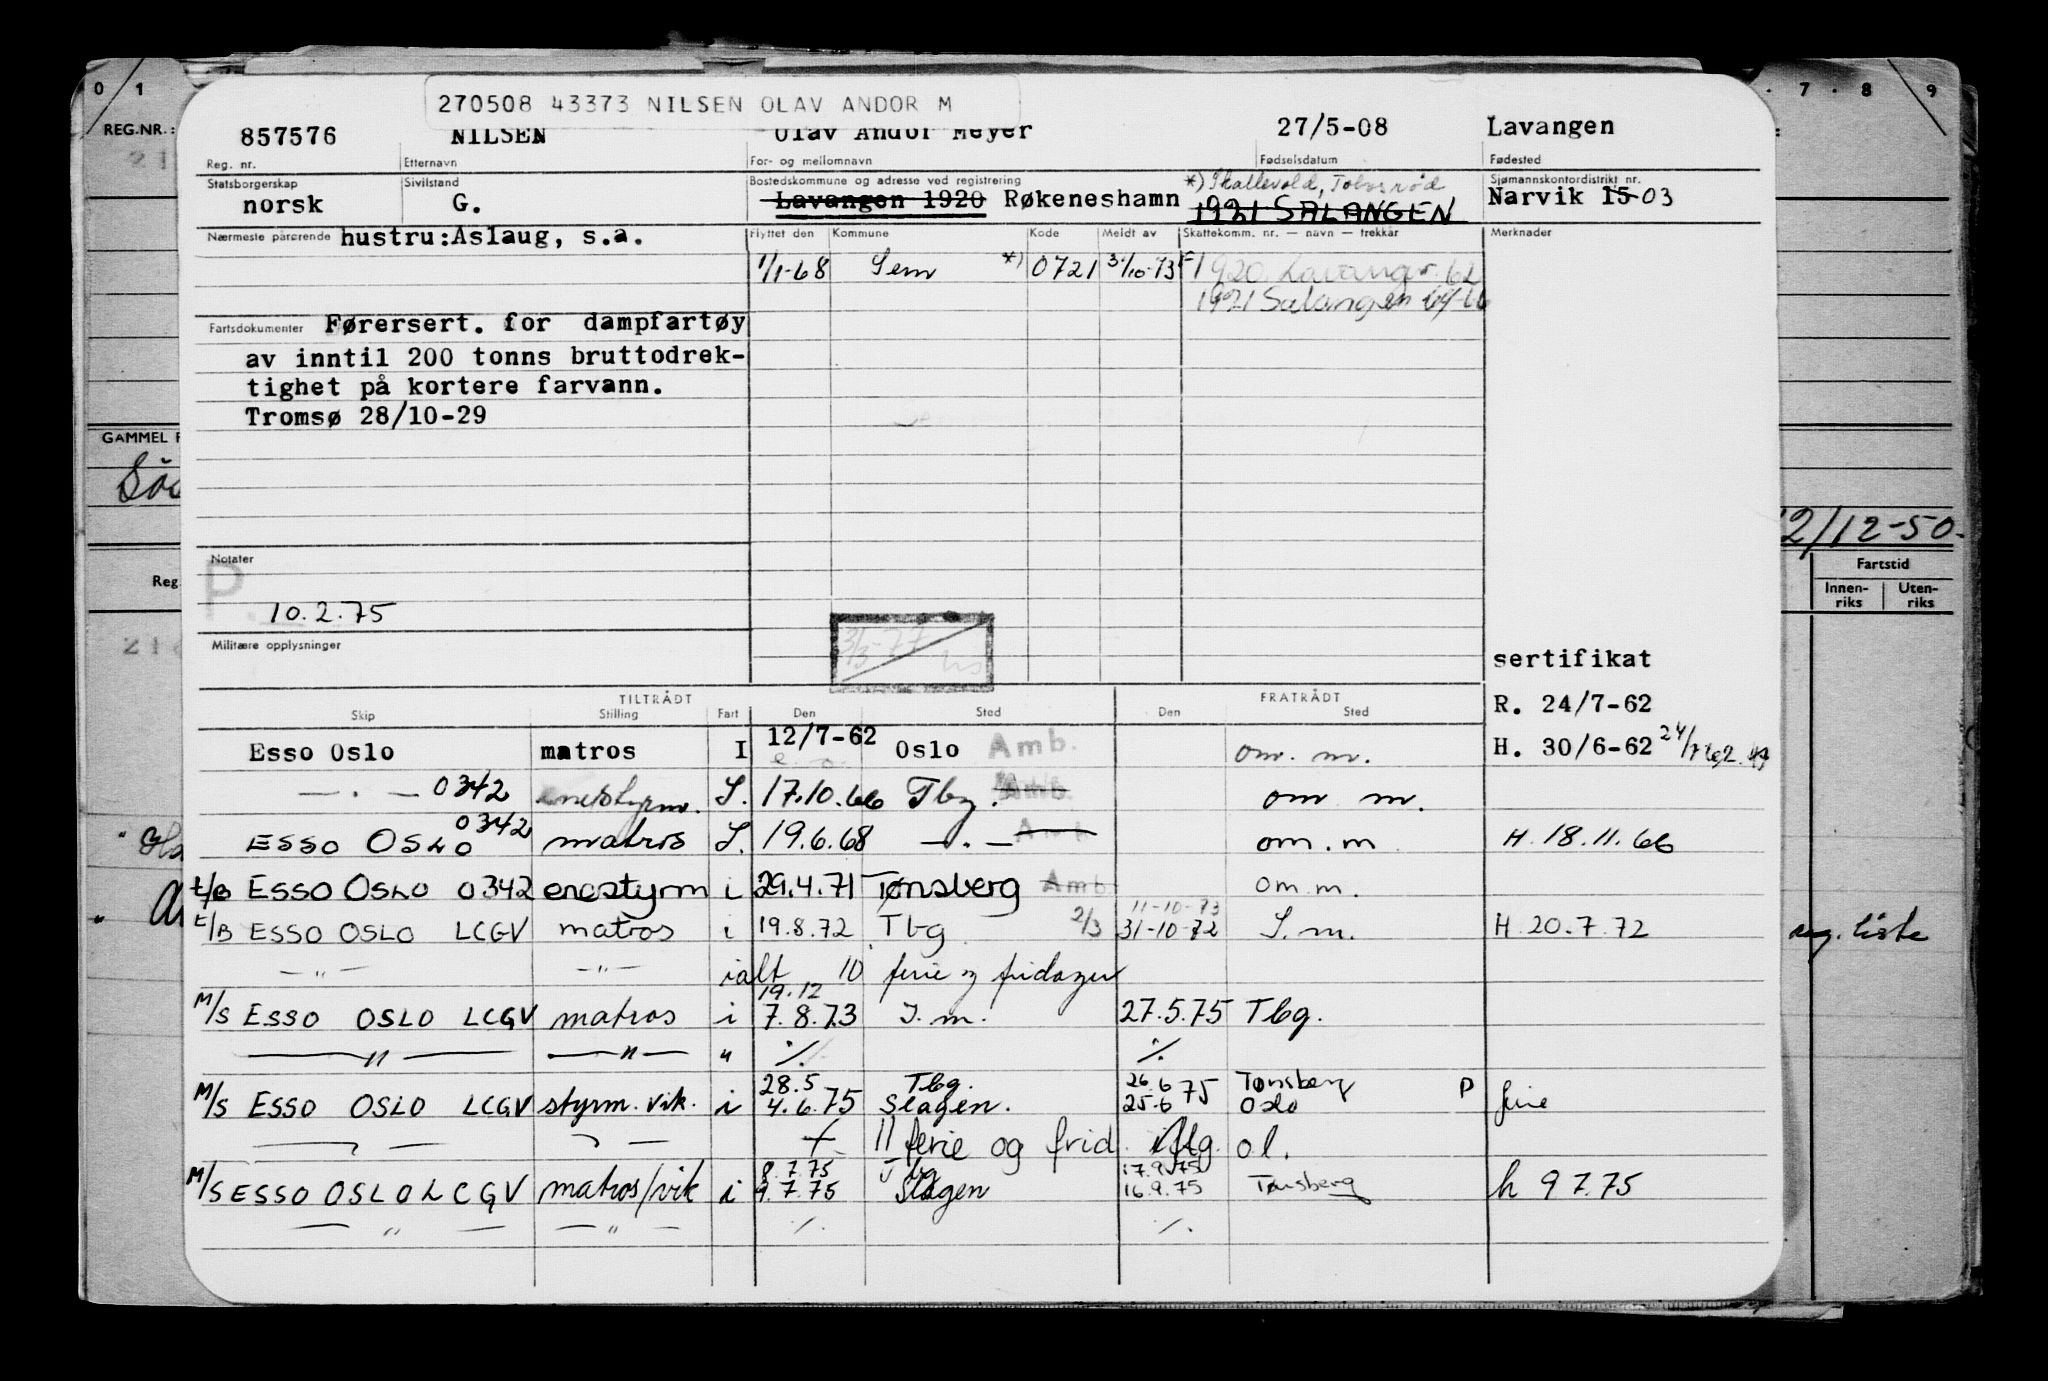 0 1 7 8 9
REG.NR.:
270508 43373 NILSEN OLAV ANDOR M
857576 NILSEN Olav Andor Meyer 27/5-08 Lavangen
Reg. nr. Etternavn For- og mellomnavn Fødselsdatum Fødested
Statsborgerskap Sivilstand Bostedskommune og adresse ved registrering *) Skallevold, Tolvsrød Sjømannskontordistrikt nr.
norsk G. Lavangen 1920 Røkeneshamn 1921 SALANGEN Narvik 15 03
Nærmeste pårørende hustru:Aslaug, s.a. Flyttet den Kommune Kode Meldt av Skattekomm. nr. — navn — trekkår Merknader
1/1-68 Sem *) 0721 1920 Lavangen 62
1921 Salangen
Fartsdokumenter Førersert. for dampfartøy
av inntil 200 tonns bruttodrek-
tighet på kortere farvann.
Tromsø 28/10-29
GAMMEL
2/12-50.
Notater
P.
10.2.75
Reg.
Fartstid
Innen-riks Uten-riks
Militære opplysninger
sertifikat
TILTRÅDT FRATRÅDT
Skip Stilling Fart Den Sted Den Sted
R. 24/7-62
Esso Oslo matros I 12/7-62 Oslo Amb. om. m. H. 30/6-62
— . — 0342 S. 17.10.66 Tbg. Amb. om m.
ESSO OSLO 0342 matros S. 19.6.68 — . — om. m H. 18.11.66
t/B ESSO OSLO 0342 enestyrm i 29.4.71 Tønsberg Amb. om m.
11-10-73
t/B ESSO OSLO LCGV matros i 19.8.72 Tbg 2/3 31-10-72 S. m. H 20.7.72
reg. liste
— " — — " — ialt 10 ferie og fridager
19.12
M/S ESSO OSLO LCGV matros i 7.8.73 S. m. 27.5.75 Tbg.
— " — — " — " ./. ./.
28.5 Tbg. 26.6 Tønsberg
M/S ESSO OSLO LCGV styrm. vik. i 4.6.75 Slagen. 25.6 75 Oslo P ferie
+ 11 ferie og frid. iflg. ol.
8.7.75 Tbg 17.9.75
M/S ESSO OSLO LCGV matros/vik i 9.7.75 Slagen 16.9.75 Tønsberg h 9 7.75
— " — — " — ./. ./.